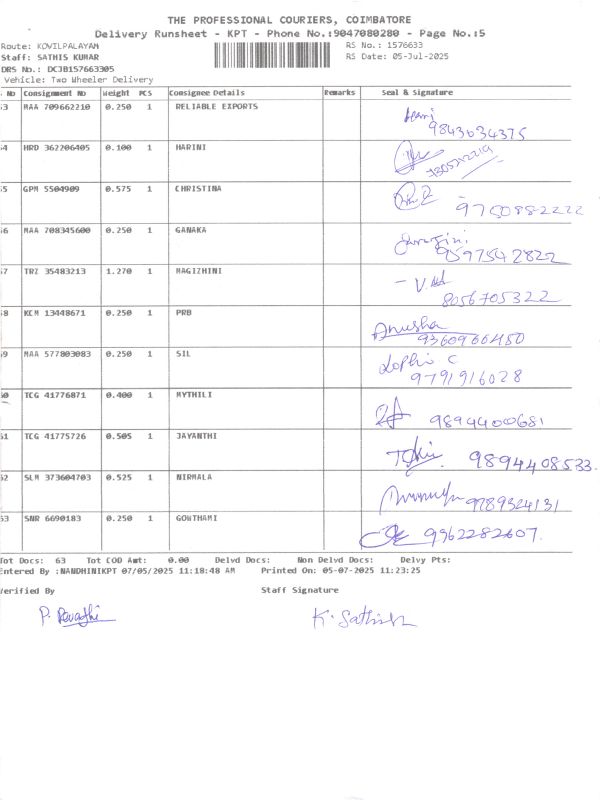 THE PROFESSIONAL COURIERS, COIMBATORE
Delivery Runsheet - KPT - Phone No.:9047080280 - Page No.:5
Route: KOVILPALAYAM
RS No.: 1576633
Staff: SATHIS KUMAR
RS Date: 05-Jul-2025
DRS No.: DCJB157663305
Vehicle: Two Wheeler Delivery
No Consignment No Weight PCS Consignee Details Remarks Seal & Signature
53 MAA 709662210 0.250 1 RELIABLE EXPORTS
9843634375
54 HRD 362206405 0.100 1 HARINI
55 GPM 5504909 0.575 1 CHRISTINA
9750882222
56 MAA 708345600 0.250 1 GANAKA
9597542822
57 TRZ 35483213 1.270 1 MAGIZHINI
8056705322
58 KCM 13448671 0.250 1 PRB
Anusha
9360966450
59 MAA 577803083 0.250 1 SIL
9791916028
60 TCG 41776871 0.400 1 MYTHILI
9894400681
61 TCG 41775726 0.505 1 JAYANTHI
9894408533.
62 SLM 373604703 0.525 1 NIRMALA
9789324131
63 SNR 6690183 0.250 1 GOWTHAMI
9962282607.
Tot Docs: 63 Tot COD Amt: 0.00 Delvd Docs: Non Delvd Docs: Delvy Pts:
Entered By :NANDHINIKPT 07/05/2025 11:18:48 AM Printed On: 05-07-2025 11:23:25
Verified By Staff Signature
P. Revathi K. Sathish